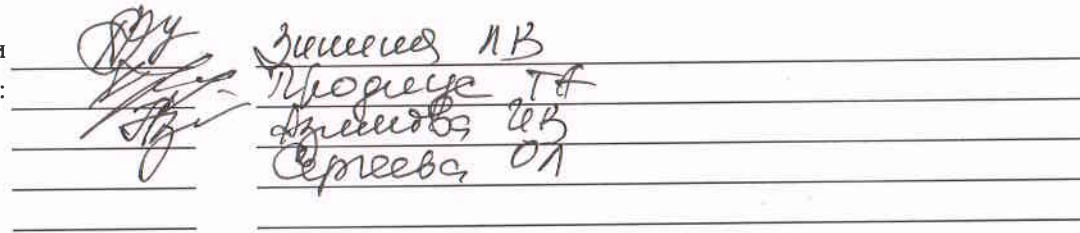 и Зимина ЛВ
: Продиус ТА
Азимова ИВ
Сергеева ОЛ